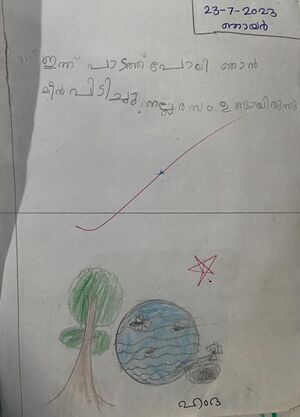 23-7-2023
ഞായർ
ഇന്ന് പാടത്ത് പോയി ഞാൻ
മീൻ പിടിച്ചു നല്ല രസം ഉണ്ടായിരുന്നു
ഹംദ